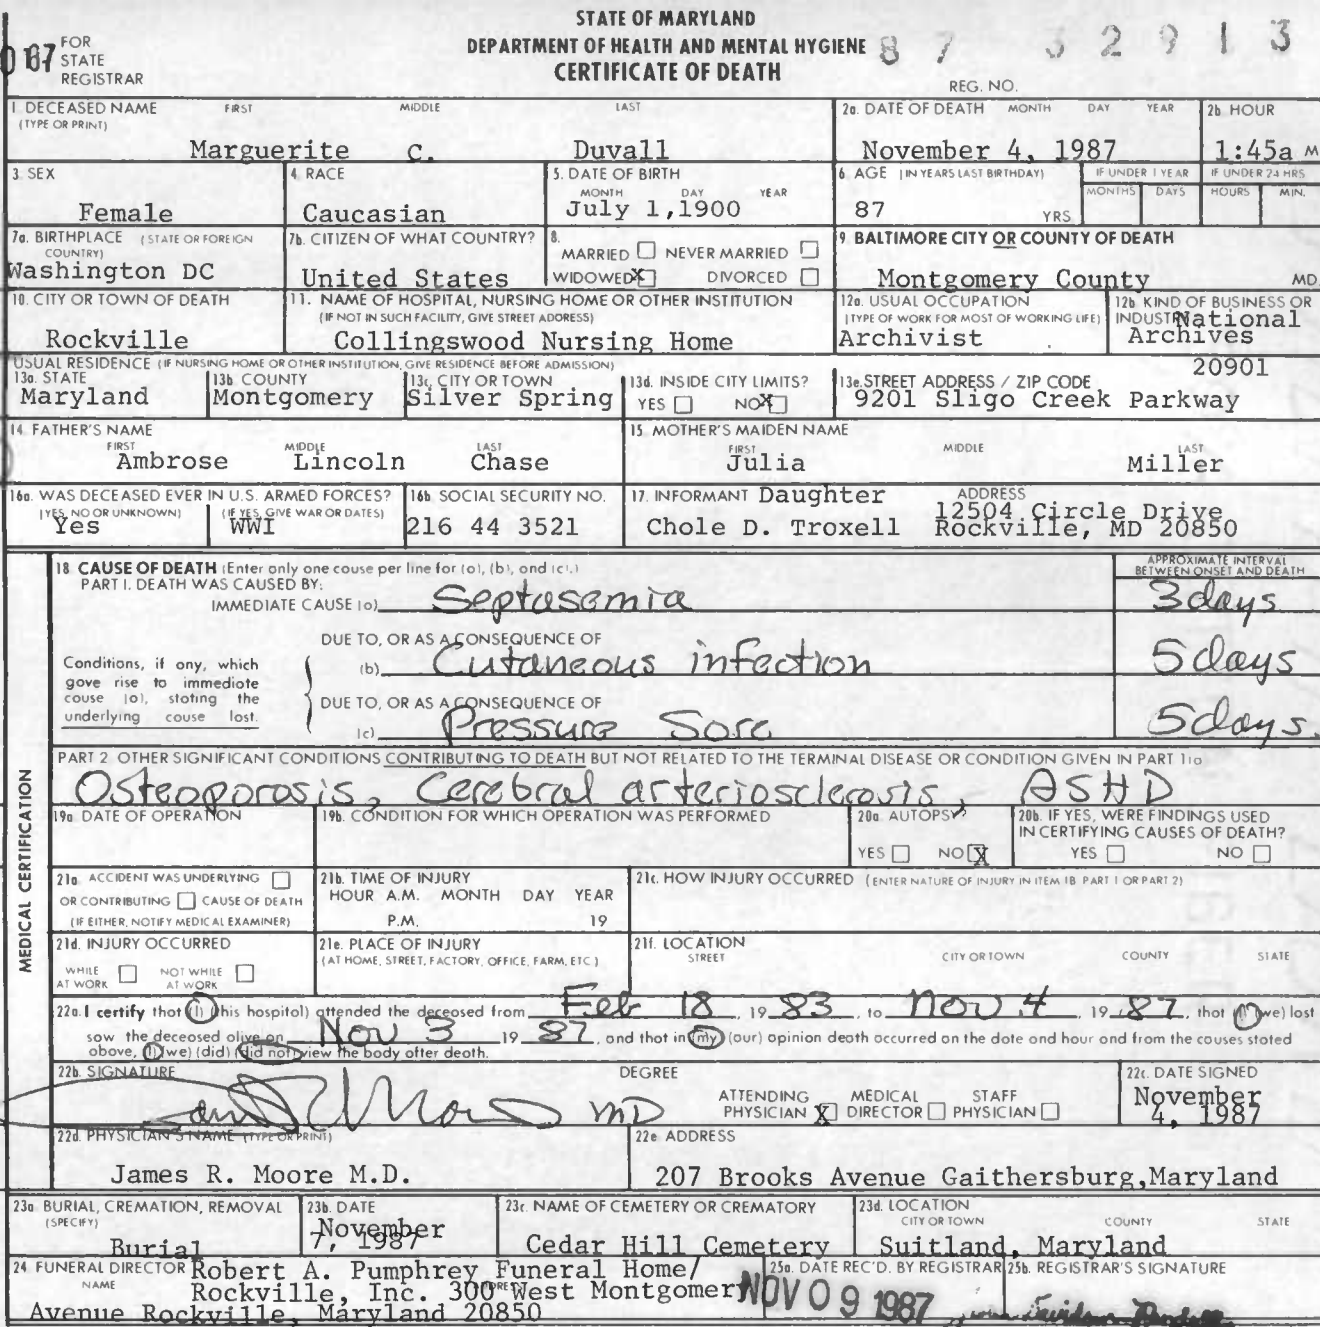 STATE OF MARYLAND
DEPARTMENT OF HEALTH AND MENTAL HYGIENE
CERTIFICATE OF DEATH
FOR STATE REGISTRAR
87 32913
REG. NO.
1. DECEASED NAME (TYPE OR PRINT) FIRST MIDDLE LAST
Marguerite C. Duvall
2a. DATE OF DEATH MONTH DAY YEAR
November 4, 1987
2b. HOUR
1:45a M
3. SEX
Female
4. RACE
Caucasian
5. DATE OF BIRTH MONTH DAY YEAR
July 1,1900
6. AGE (IN YEARS LAST BIRTHDAY)
87 YRS
IF UNDER 1 YEAR MONTHS DAYS
IF UNDER 24 HRS HOURS MIN.
7a. BIRTHPLACE (STATE OR FOREIGN COUNTRY)
Washington DC
7b. CITIZEN OF WHAT COUNTRY?
United States
8. MARRIED NEVER MARRIED
WIDOWED X DIVORCED
9. BALTIMORE CITY OR COUNTY OF DEATH
Montgomery County MD.
10. CITY OR TOWN OF DEATH
Rockville
11. NAME OF HOSPITAL, NURSING HOME OR OTHER INSTITUTION
(IF NOT IN SUCH FACILITY, GIVE STREET ADDRESS)
Collingswood Nursing Home
12a. USUAL OCCUPATION
(TYPE OF WORK FOR MOST OF WORKING LIFE)
Archivist
12b. KIND OF BUSINESS OR INDUSTRY
National Archives
USUAL RESIDENCE (IF NURSING HOME OR OTHER INSTITUTION, GIVE RESIDENCE BEFORE ADMISSION)
13a. STATE
Maryland
13b. COUNTY
Montgomery
13c. CITY OR TOWN
Silver Spring
13d. INSIDE CITY LIMITS?
YES NO X
13e. STREET ADDRESS / ZIP CODE
20901
9201 Sligo Creek Parkway
14. FATHER'S NAME FIRST MIDDLE LAST
Ambrose Lincoln Chase
15. MOTHER'S MAIDEN NAME FIRST MIDDLE LAST
Julia Miller
16a. WAS DECEASED EVER IN U.S. ARMED FORCES?
(YES, NO OR UNKNOWN) (IF YES, GIVE WAR OR DATES)
Yes WWI
16b. SOCIAL SECURITY NO.
216 44 3521
17. INFORMANT Daughter ADDRESS
Chole D. Troxell
12504 Circle Drive
Rockville, MD 20850
MEDICAL CERTIFICATION
18. CAUSE OF DEATH (Enter only one cause per line for (a), (b), and (c).)
PART I. DEATH WAS CAUSED BY:
APPROXIMATE INTERVAL BETWEEN ONSET AND DEATH
IMMEDIATE CAUSE (a) Septasemia 3 days
DUE TO, OR AS A CONSEQUENCE OF
(b) Cutaneous infection 5 days
DUE TO, OR AS A CONSEQUENCE OF
(c) Pressure Sore 5 days.
Conditions, if any, which
gave rise to immediate
cause (a), stating the
underlying cause last.
PART 2 OTHER SIGNIFICANT CONDITIONS CONTRIBUTING TO DEATH BUT NOT RELATED TO THE TERMINAL DISEASE OR CONDITION GIVEN IN PART 1(a)
Osteoporosis, Cerebral arteriosclerosis, ASHD
19a. DATE OF OPERATION
19b. CONDITION FOR WHICH OPERATION WAS PERFORMED
20a. AUTOPSY?
YES NO X
20b. IF YES, WERE FINDINGS USED
IN CERTIFYING CAUSES OF DEATH?
YES NO
21a. ACCIDENT WAS UNDERLYING
OR CONTRIBUTING CAUSE OF DEATH
(IF EITHER, NOTIFY MEDICAL EXAMINER)
21b. TIME OF INJURY
HOUR A.M. MONTH DAY YEAR
P.M. 19
21c. HOW INJURY OCCURRED (ENTER NATURE OF INJURY IN ITEM 18 PART 1 OR PART 2)
21d. INJURY OCCURRED
WHILE AT WORK NOT WHILE AT WORK
21e. PLACE OF INJURY
(AT HOME, STREET, FACTORY, OFFICE, FARM, ETC.)
21f. LOCATION
STREET CITY OR TOWN COUNTY STATE
22a. I certify that (I) (this hospital) attended the deceased from Feb 18, 19 83, to Nov 4, 19 87, that (I) (we) last
saw the deceased alive on Nov 3 19 87, and that in (my) (our) opinion death occurred on the date and hour and from the causes stated
above, (I) (we) (did) (did not) view the body after death.
22b. SIGNATURE DEGREE
MD
ATTENDING PHYSICIAN X MEDICAL DIRECTOR STAFF PHYSICIAN
22c. DATE SIGNED
November 4, 1987
22d. PHYSICIAN'S NAME (TYPE OR PRINT)
James R. Moore M.D.
22e. ADDRESS
207 Brooks Avenue Gaithersburg,Maryland
23a. BURIAL, CREMATION, REMOVAL (SPECIFY)
Burial
23b. DATE
November 7, 1987
23c. NAME OF CEMETERY OR CREMATORY
Cedar Hill Cemetery
23d. LOCATION
CITY OR TOWN COUNTY STATE
Suitland, Maryland
24. FUNERAL DIRECTOR NAME
Robert A. Pumphrey Funeral Home/
Rockville, Inc. 300 West Montgomery
Avenue Rockville, Maryland 20850
25a. DATE REC'D. BY REGISTRAR
NOV 09 1987
25b. REGISTRAR'S SIGNATURE